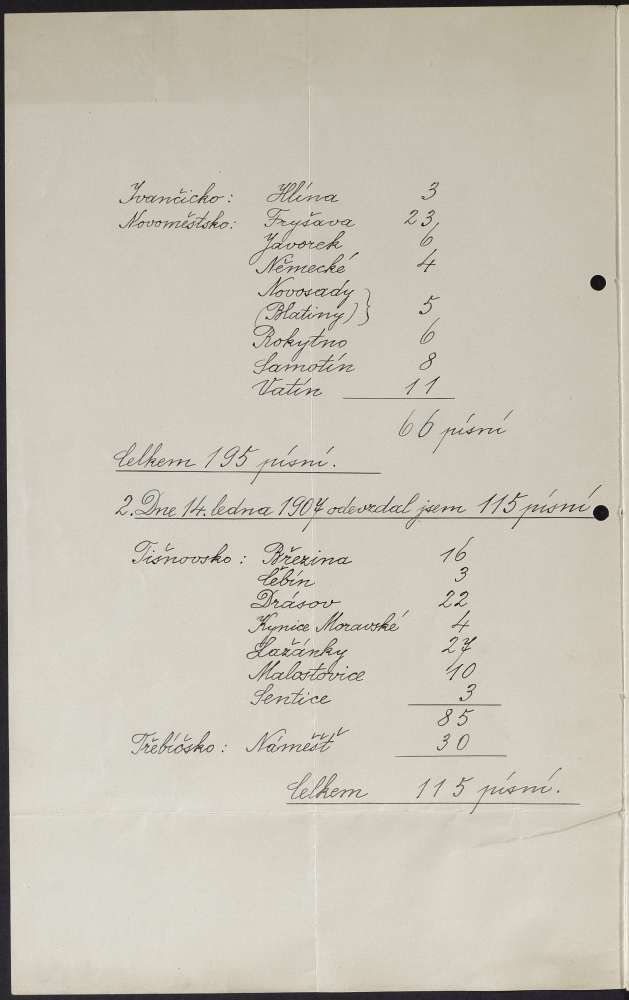 Ivančicko: Hlína 3
Novoměstsko: Fryšava 23
Javorek 6
Německé 4
Novosady
(Blatiny) } 5
Rokytno 6
Samotín 8
Vatín 11
66 písní
Celkem 195 písní.
2. Dne 14. ledna 1907 odevzdal jsem 115 písní
Tišnovsko: Březina 16
Čebín 3
Drásov 22
Kynice Moravské 4
Lažánky 27
Malostovice 10
Sentice 3
85
Třebíčsko: Náměšť 30
Celkem 115 písní.